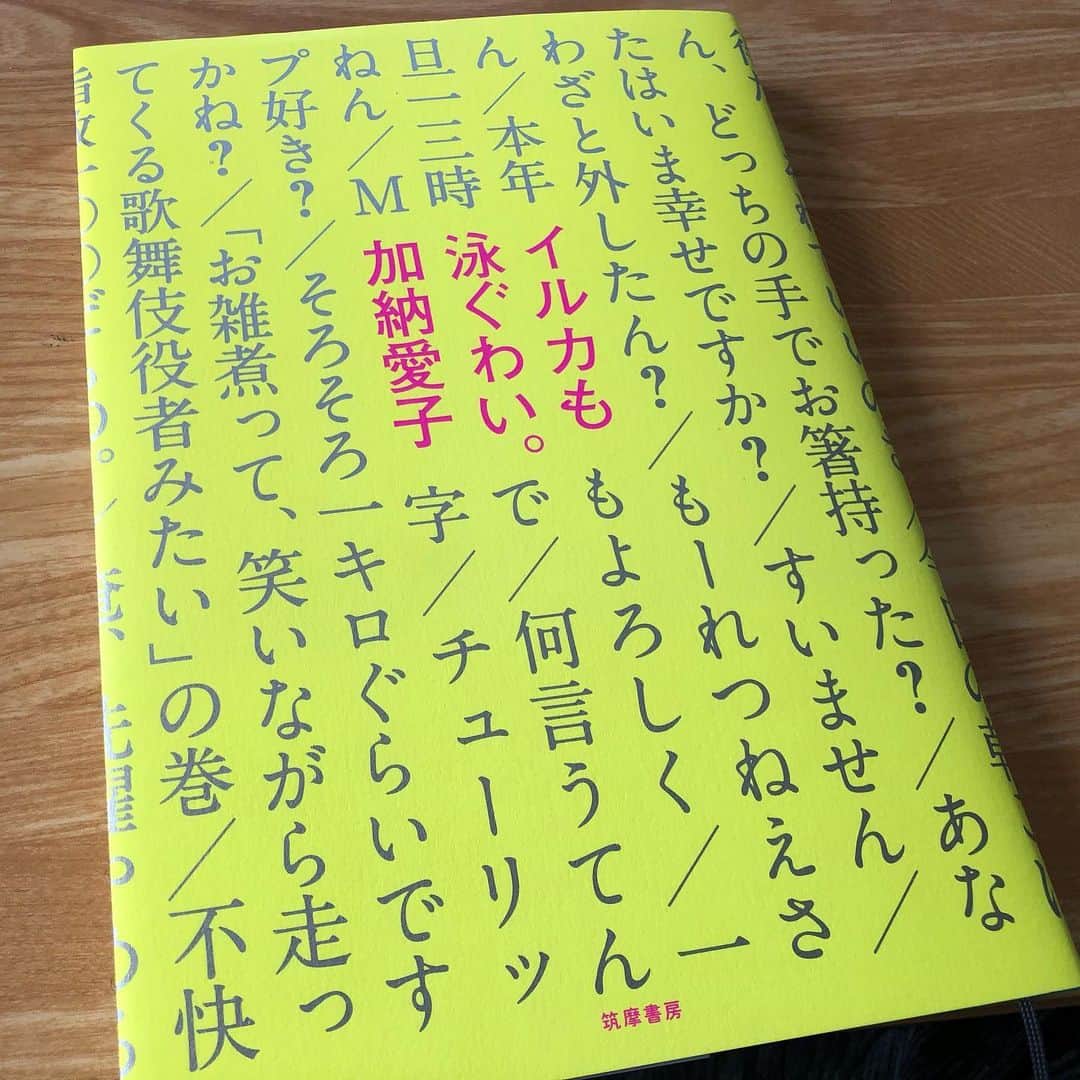 ん、どっちの手でお箸持った？／あな
たはいま幸せですか？／すいません／
わざと外したん？／もーれつねえさ
ん／本年
もよろしく／一
旦一三時
で／何言うてん
ねん／M
字／チューリッ
プ好き？／そろそろ一キロぐらいです
かね？／「お雑煮って、笑いながら走っ
てくる歌舞伎役者みたい」の巻／不快
イルカも
泳ぐわい。
加納愛子
筑摩書房